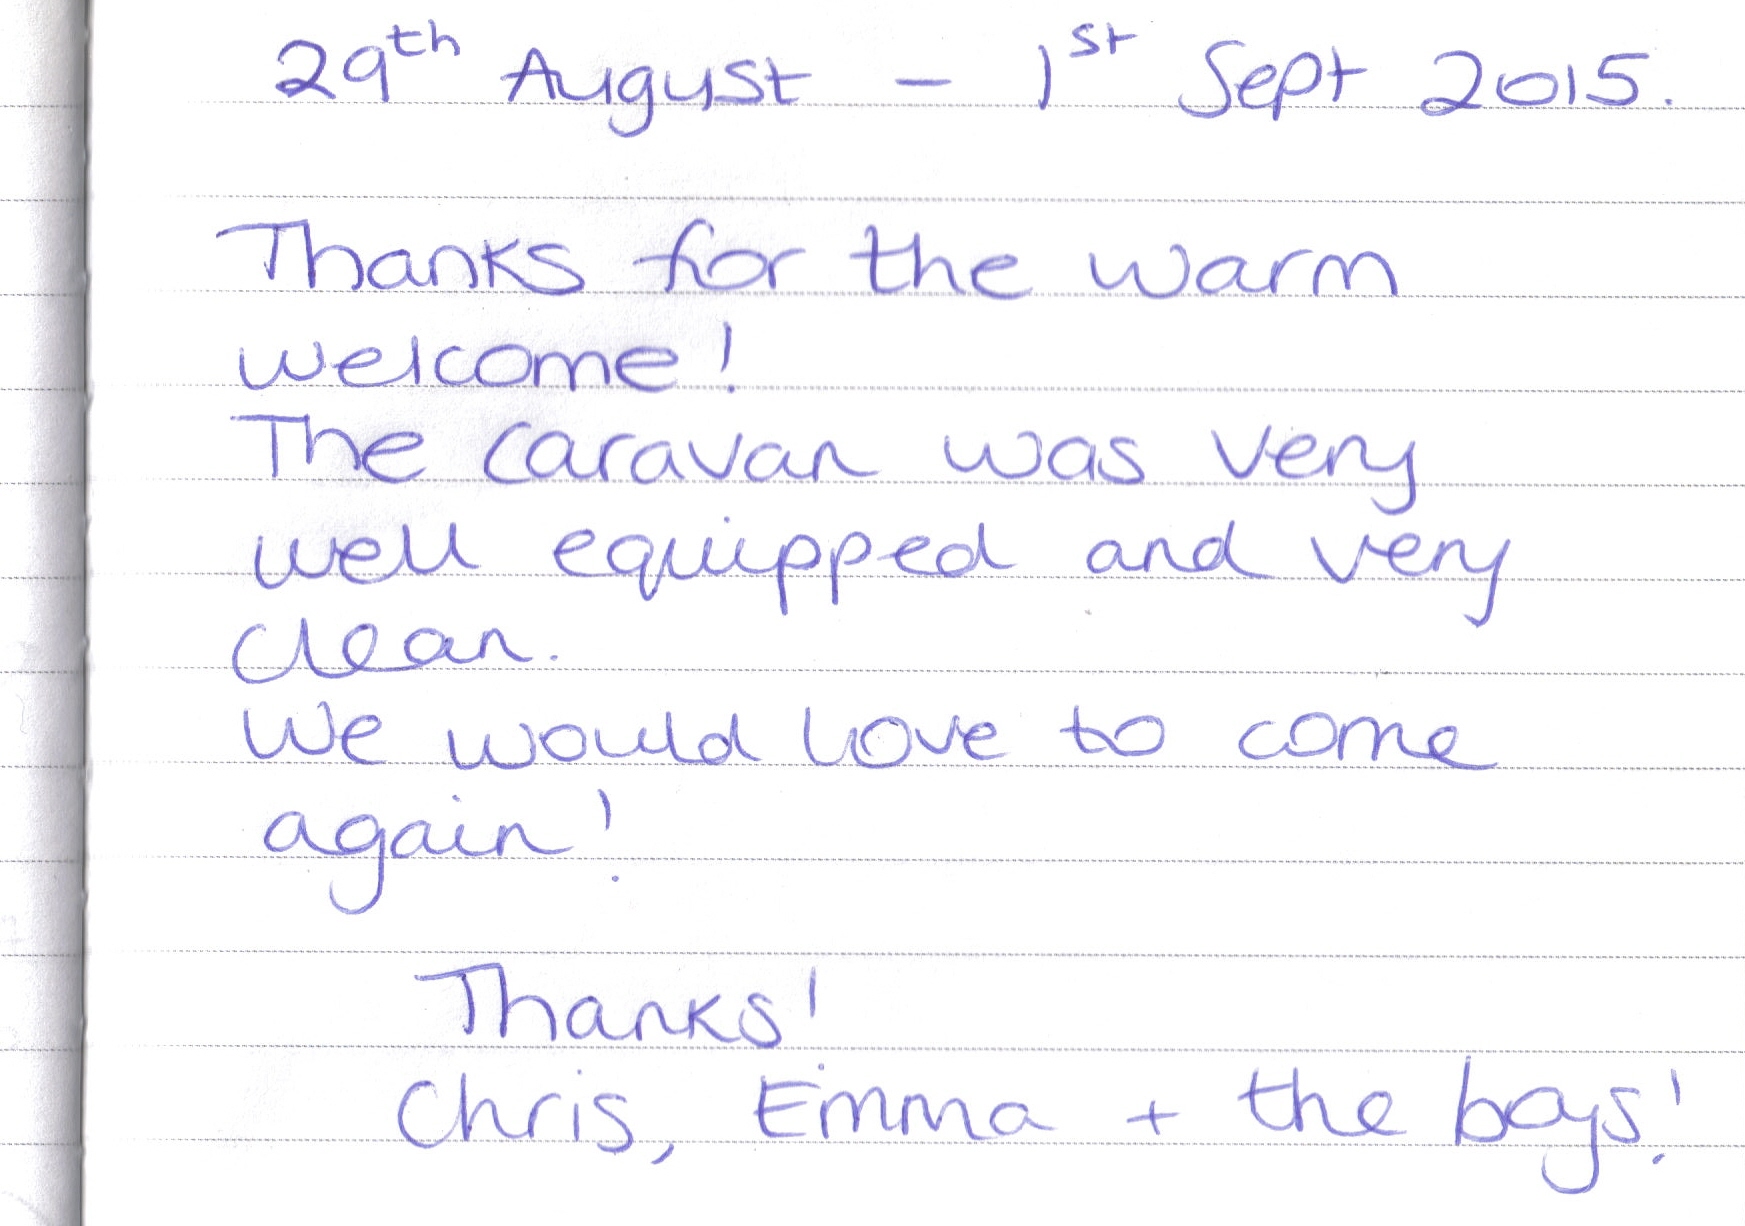 29th August - 1st Sept 2015.
Thanks for the warm
welcome!
The caravan was very
well equipped and very
clean.
We would love to come
again!
Thanks!
Chris, Emma + the boys!